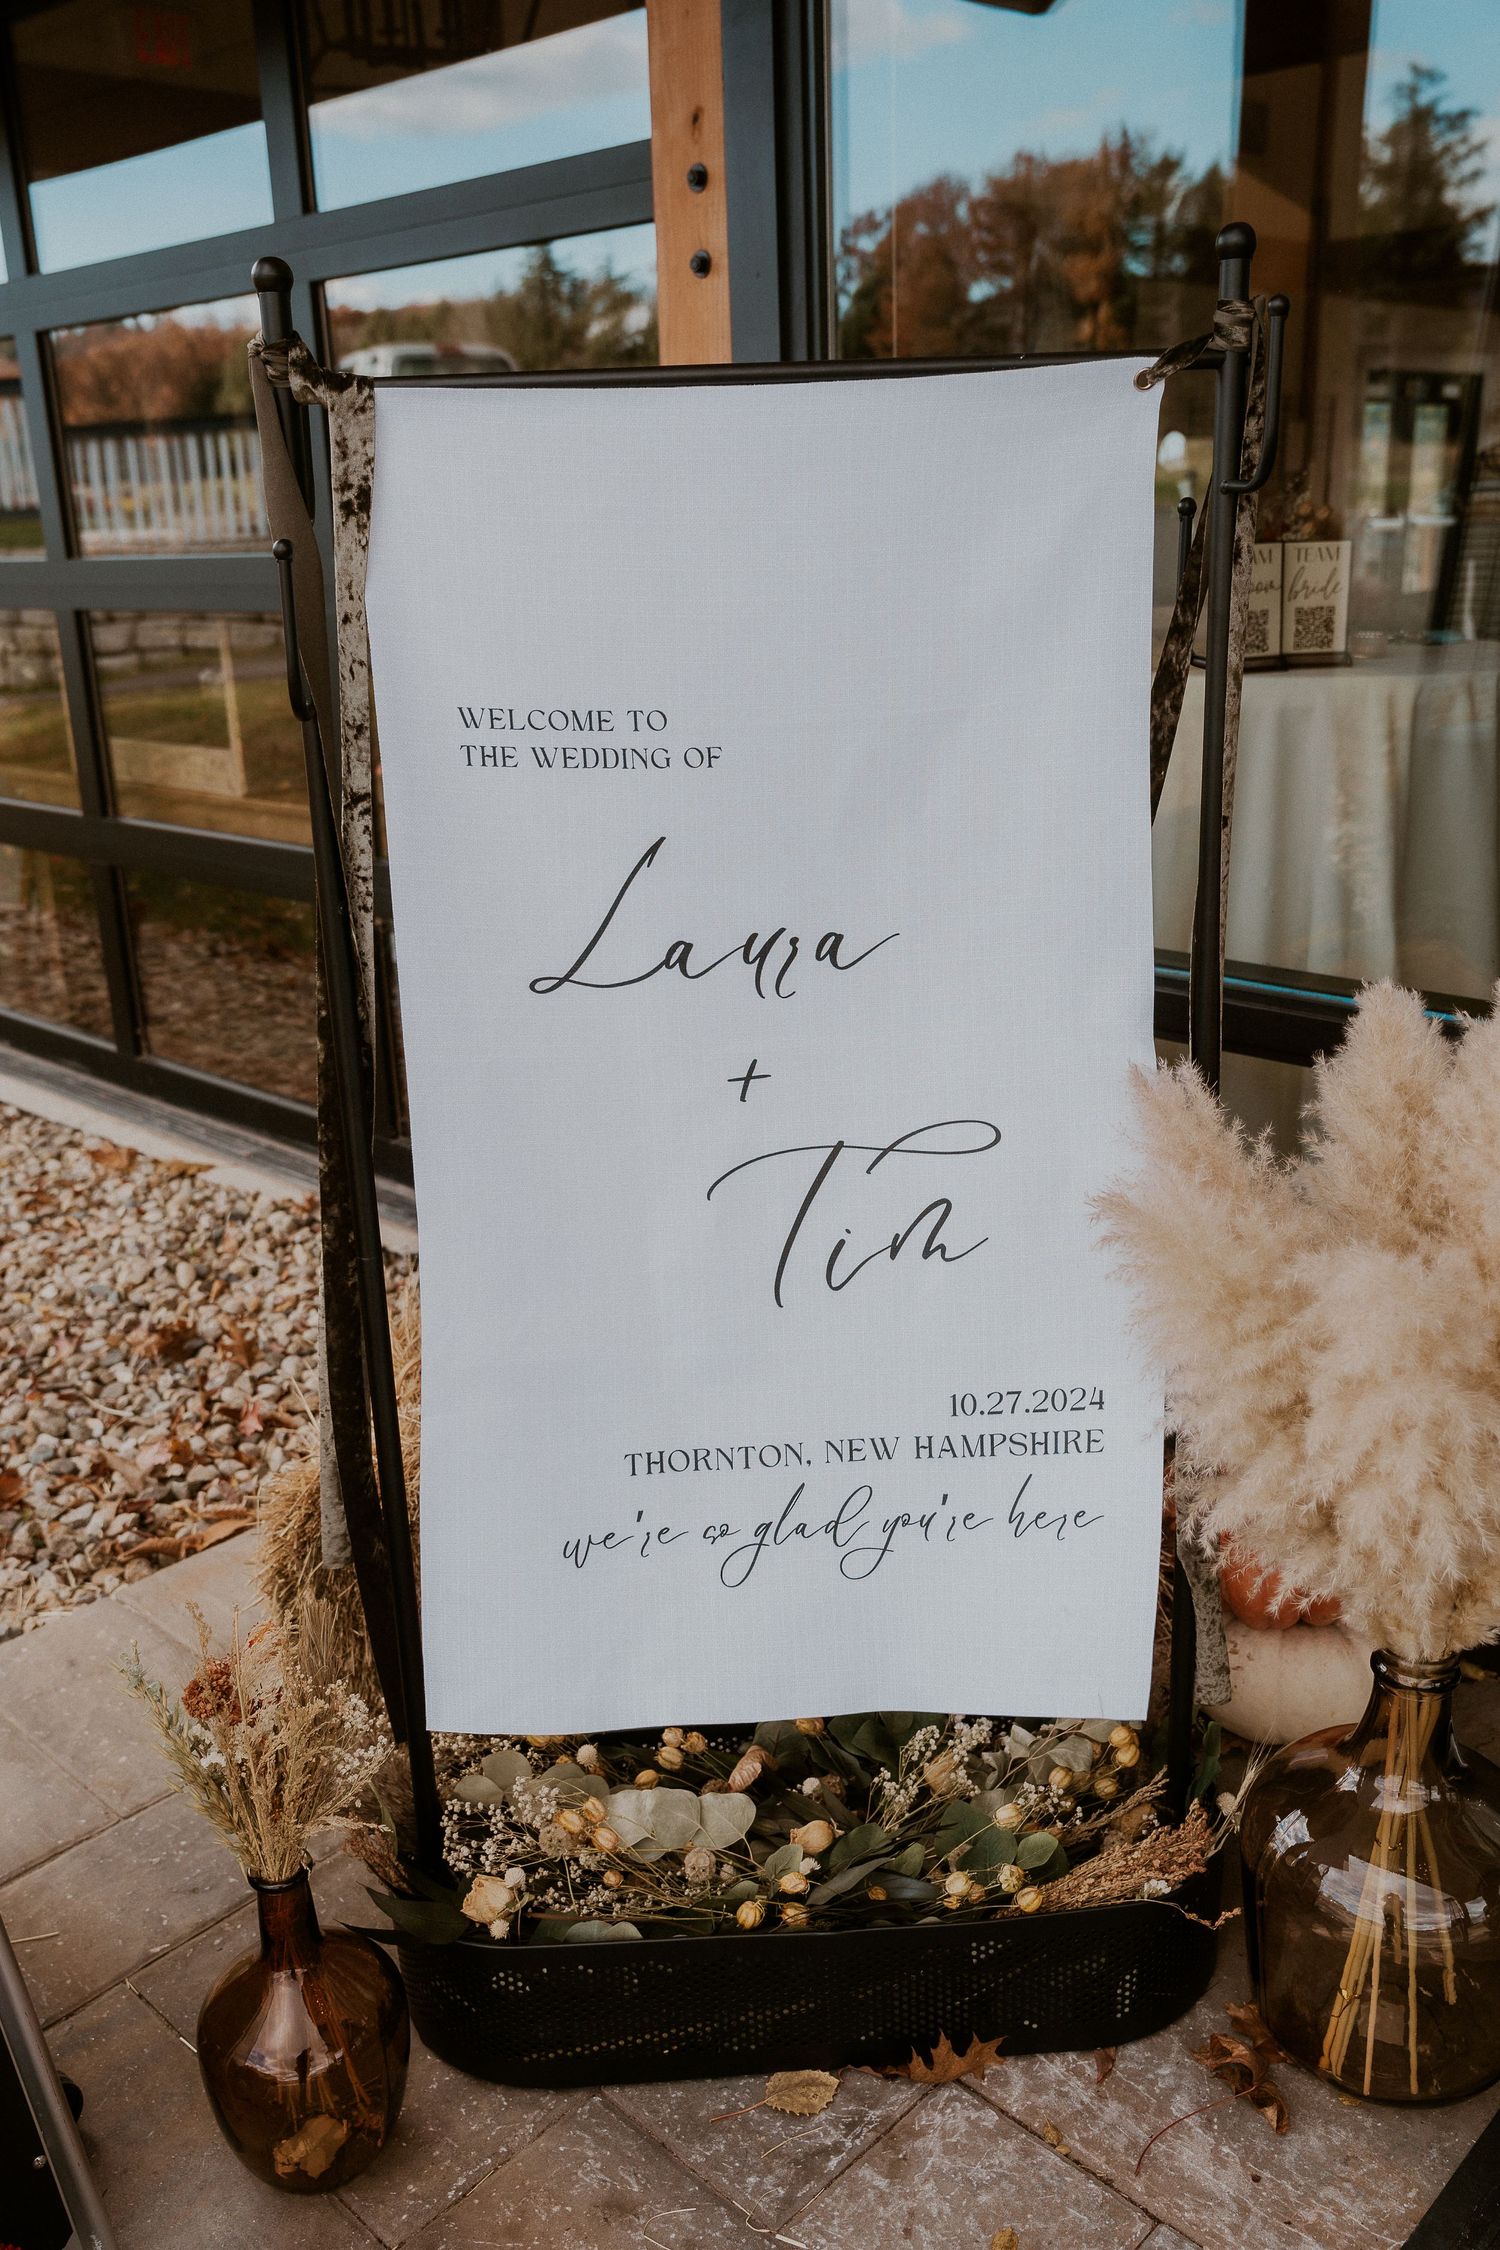 EXIT
WELCOME TO
THE WEDDING OF
Laura
+
Tim
10.27.2024
THORNTON, NEW HAMPSHIRE
we're so glad you're here
TEAM
bride